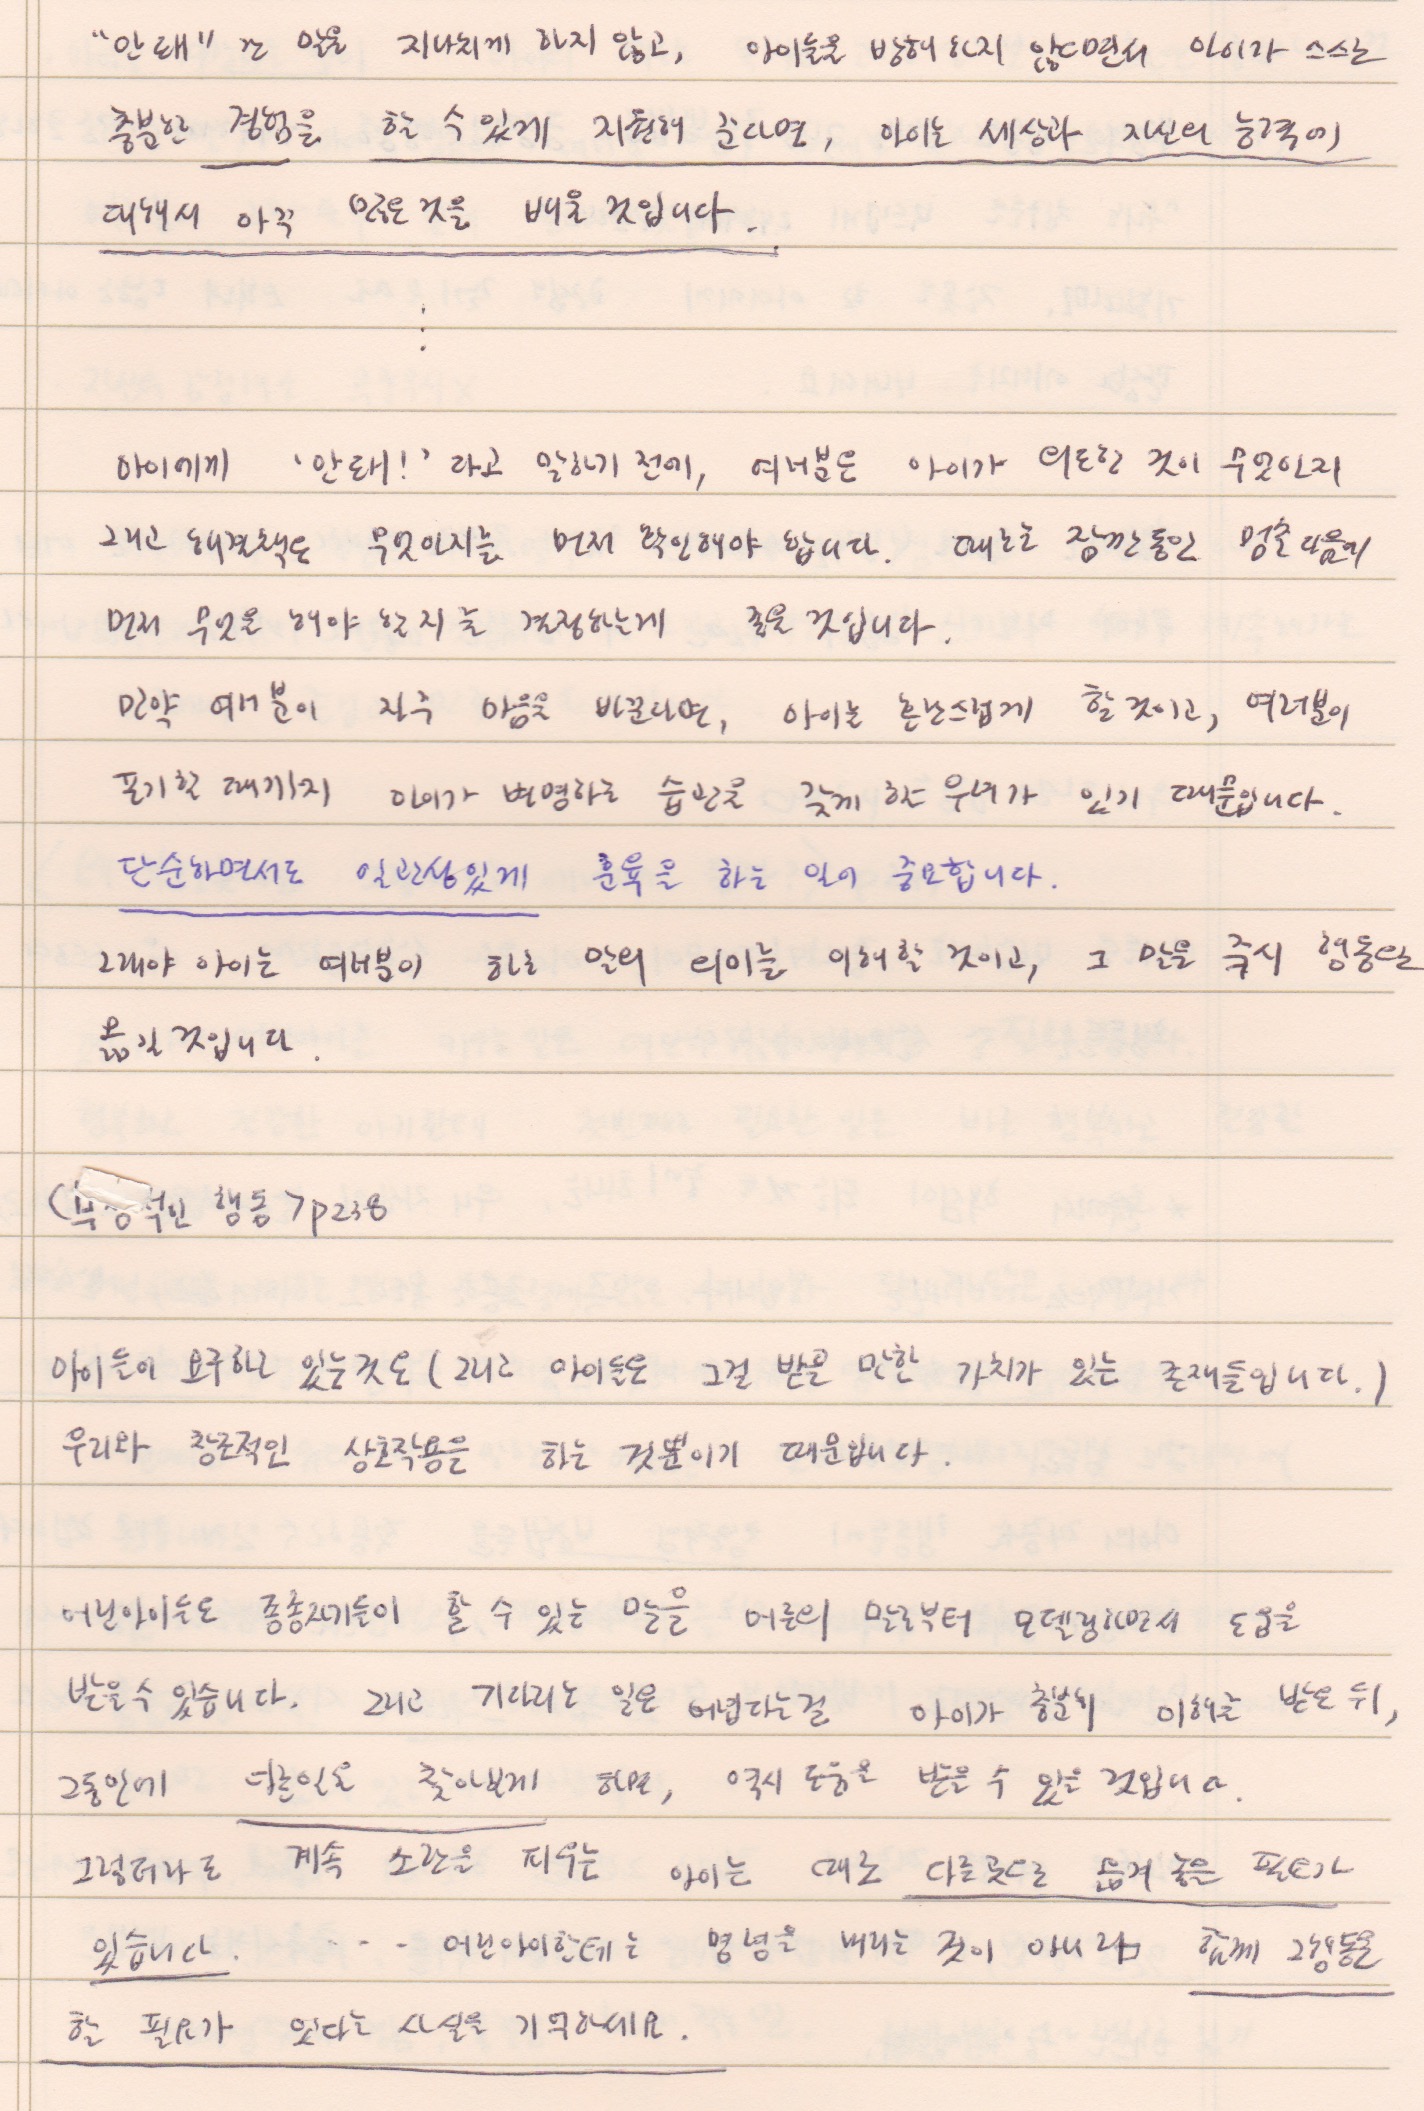 "안돼" 란 말을 지나치게 하지 않고, 아이들을 방해하지 않으면서 아이가 스스로
충분한 경험을 할 수 있게 지원해 준다면, 아이는 세상과 자신의 능력에
대해서 아주 많은것을 배울 것입니다.
⋮
아이에게 '안돼!' 라고 말하기 전에, 여러분은 아이가 의도한 것이 무엇인지
그리고 해결책은 무엇인지를 먼저 확인해야 합니다. 때로는 잠깐동안 멈춘 다음에
먼저 무엇을 해야 할지를 결정하는게 좋을 것입니다.
만약 여러분이 자주 마음을 바꾼다면, 아이는 혼란스럽게 할 것이고, 여러분이
포기할 때까지 아이가 변명하는 습관을 갖게 할 우려가 있기 때문입니다.
단순하면서도 일관성있게 훈육을 하는 일이 중요합니다.
그래야 아이는 여러분이 하는 말의 의미를 이해할 것이고, 그 말을 즉시 행동으로
옮길 것입니다.
적인 행동 > p238
아이들이 요구하고 있는것은 (그리고 아이들은 그걸 받을 만한 가치가 있는 존재들입니다.)
우리와 창조적인 상호작용을 하는 것뿐이기 때문입니다.
어린아이들도 종종자기들이 할 수 있는 말을 어른의 말로부터 모델링하면서 도움을
받을 수 있습니다. 그리고 기다리는 일은 어렵다는걸 아이가 충분히 이해를 받은 뒤,
그동안에 다른일을 찾아보게 하면, 역시 도움을 받을 수 있을 것입니다.
그럼더라도 계속 소란을 피우는 아이는 때로 다른곳으로 옮겨 놓을 필요가
있습니다. ··· 어린아이한테는 명령을 내리는 것이 아니라 함께 그행동을
할 필요가 있다는 사실을 기억하세요.